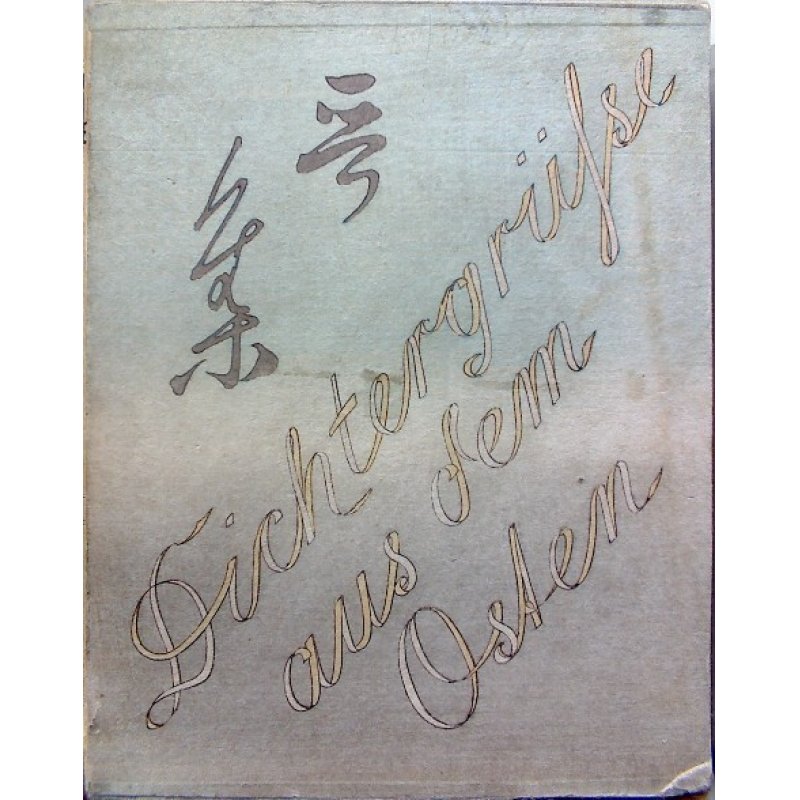 集
Dichtergrüſse
aus dem
Osten